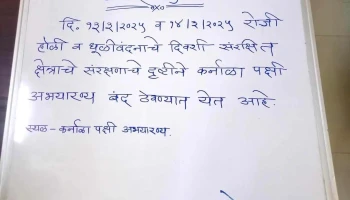 दि. १३/३/२०२५ व १४/३/२०२५ रोजी
होळी व धूळीवंदनाचे दिवशी संरक्षित
क्षेत्राचे संरक्षणाचे दृष्टीने कर्नाळा पक्षी
अभयारण्य बंद ठेवण्यात येत आहे.
स्थळ - कर्नाळा पक्षी अभयारण्य.